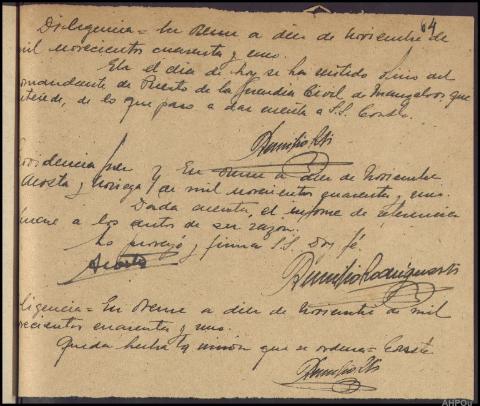 64
Diligencia = En Orense a diez de Noviembre de
mil novecientos cuarenta y uno.
En el día de hoy se ha recibido del
omandante de Puesto de la Guardia Civil de que
antecede, de lo que paso a dar cuenta a S.S. Conste.
Providencia Juez } En Orense a diez de Noviembre
Acosta y Noriega } de mil novecientos cuarenta y uno.
Dada cuenta, el informe de referencia
únase a los autos de su razón.
Lo proveyó y firma S.S. Doy fé.
Acosta
Rodríguez
ligencia = En Orense a diez de Noviembre de mil
vecientos cuarenta y uno.
Queda hecha la unión que se ordena = Conste
AHPOu